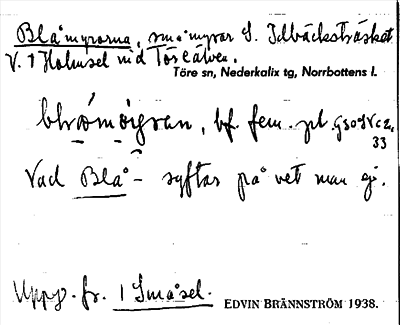 Blåmyrorna, småmyror S. Idbäcksträsket
V. 1 Holmsel vid Töreälven.
Töre sn, Nederkalix tg, Norrbottens l.
bf. fem. pl.
33
Vad Blå- syftar på vet man ej.
Uppg. fr. 1 Småsel. EDVIN BRÄNNSTRÖM 1938.